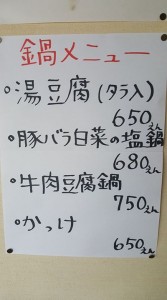 鍋メニュー
・湯豆腐(タラ入)
650えん
・豚バラ白菜の塩鍋
680えん
・牛肉豆腐鍋
750えん
・かっけ
650えん